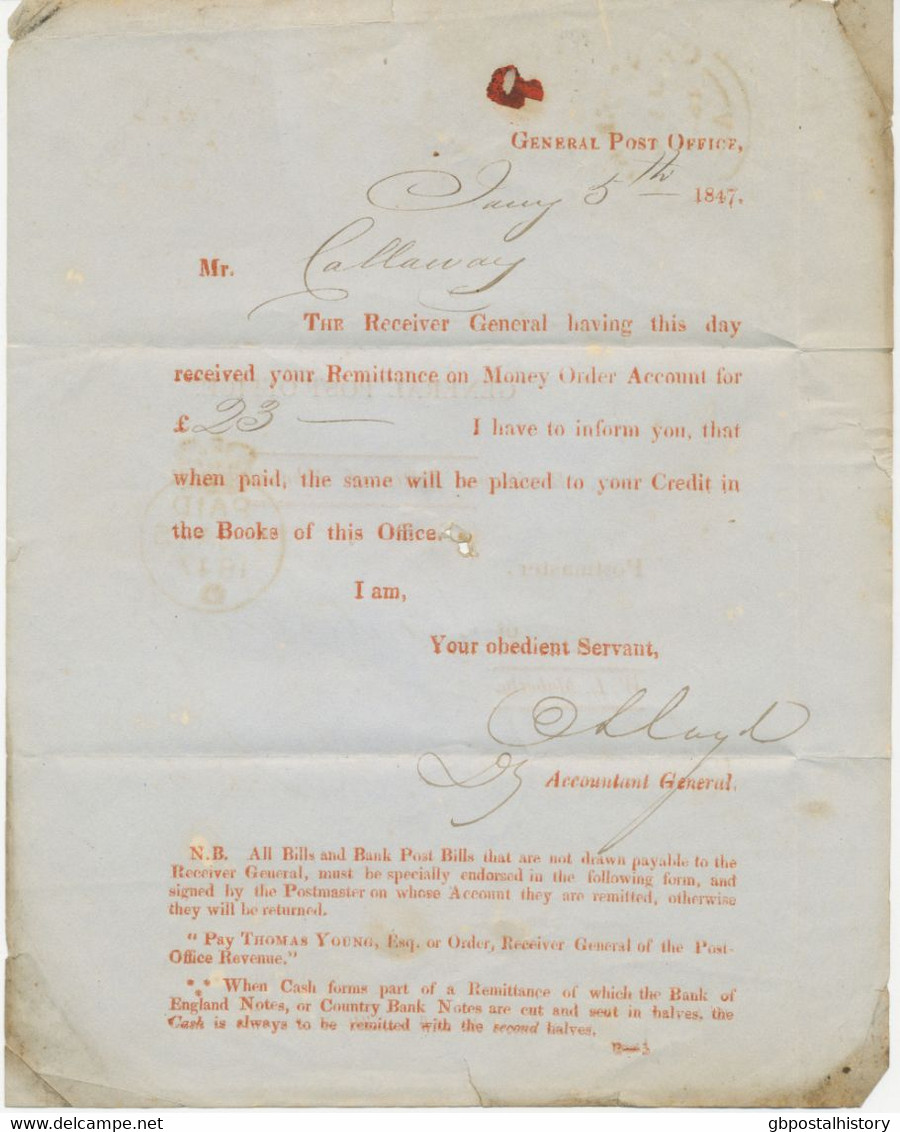 GENERAL POST OFFICE,
Jany 5th 1847.
Mr. Callaway
THE Receiver General having this day
received your Remittance on Money Order Account for
£ 23 — I have to inform you, that
when paid, the same will be placed to your Credit in
the Books of this Office.
I am,
Your obedient Servant,
Accountant General.
N.B. All Bills and Bank Post Bills that are not drawn payable to the
Receiver General, must be specially endorsed in the following form, and
signed by the Postmaster on whose Account they are remitted, otherwise
they will be returned.
"Pay THOMAS YOUNG, Esq. or Order, Receiver General of the Post-
Office Revenue."
*⁎* When Cash forms part of a Remittance of which the Bank of
England Notes, or Country Bank Notes are cut and sent in halves, the
Cash is always to be remitted with the second halves.
B—3
PAID
1847
Postmaster.
delcampe.net
gbpostalhistory